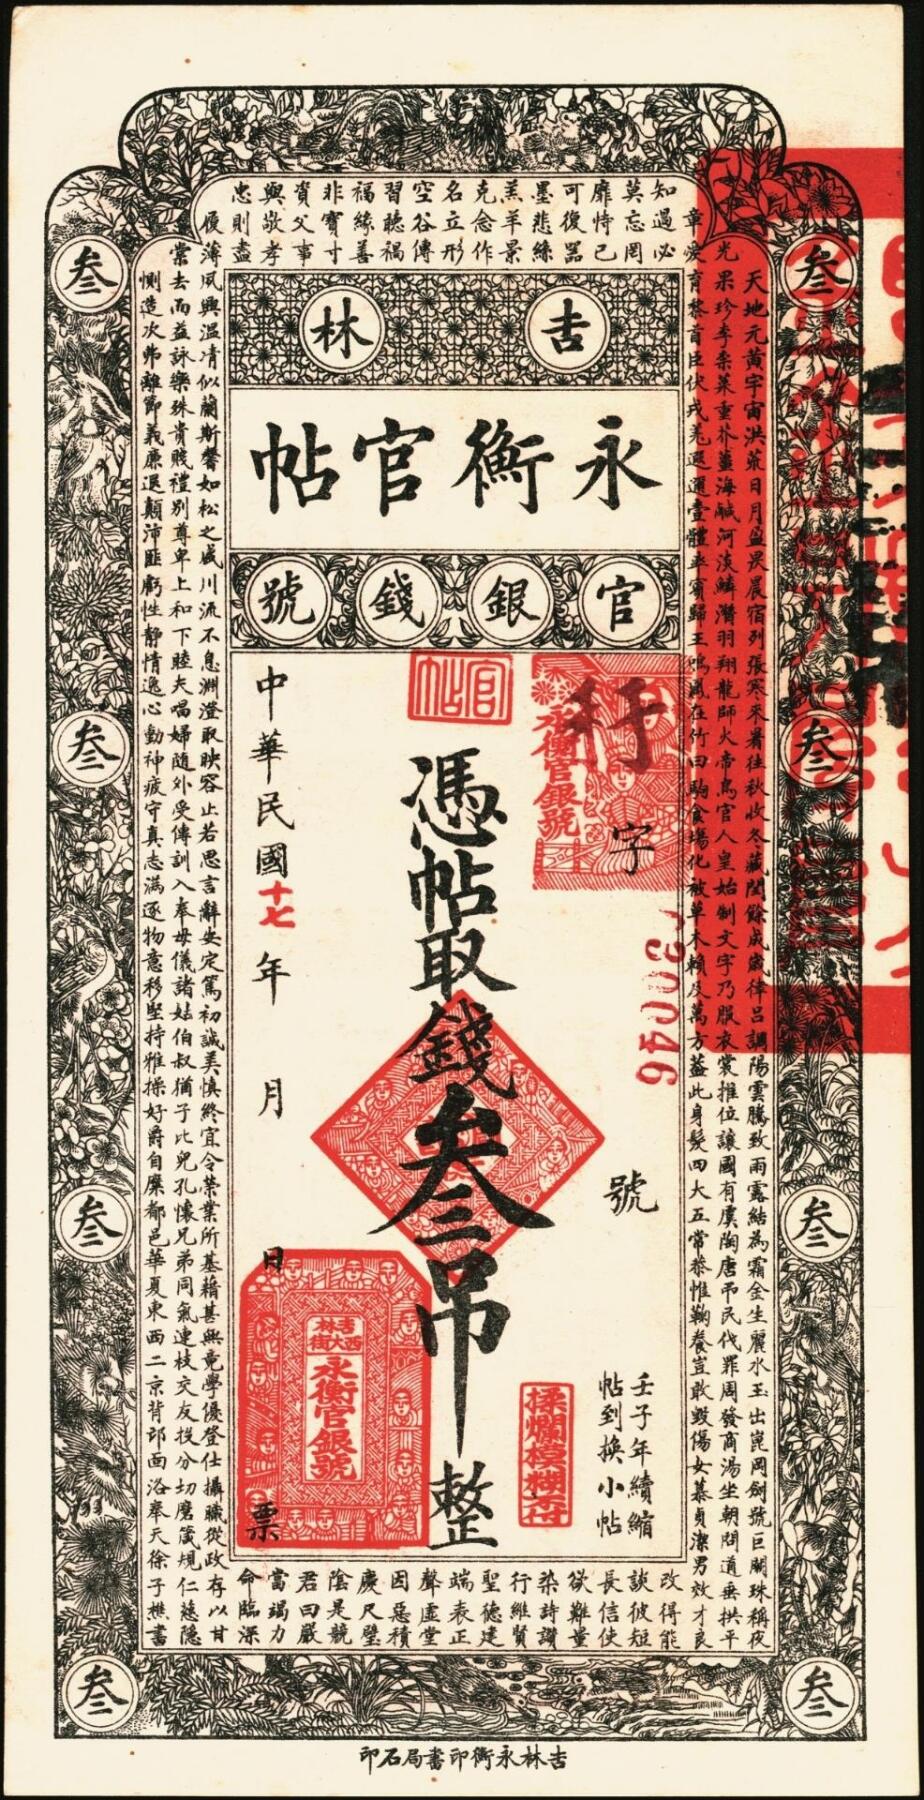 吉林
永衡官帖
官銀錢號
字
號
83000046
憑帖取錢叁吊整
官帖
永衡官銀號
壬子年續縮
帖到換小帖
中華民國十七年 月 日 票
吉林
西大街
永衡官銀號
叁
叁
叁
叁
叁
叁
叁
叁
天地元黃宇宙洪荒日月盈昃晨宿列張寒來暑往秋收冬藏閏餘成歲律呂調陽雲騰致雨露結為霜金生麗水玉出崑岡劍號巨闕珠稱夜
光果珍李柰菜重芥薑海鹹河淡鱗潛羽翔龍師火帝鳥官人皇始制文字乃服衣裳推位讓國有虞陶唐弔民伐罪周發商湯坐朝問道垂拱平
章愛育黎首臣伏戎羌遐邇壹體率賓歸王鳴鳳在竹白駒食場化被草木賴及萬方蓋此身髮四大五常恭惟鞠養豈敢毀傷女慕貞潔男效才良
知過必
改得能
莫忘罔
談彼短
靡恃己
長信使
可復器
欲難量
墨悲絲
染詩讚
羔羊景
行維賢
克念作
聖德建
名立形
端表正
空谷傳
聲虛堂
習聽禍
因惡積
福緣善
慶尺璧
非寶寸
陰是競
資父事
君曰嚴
與敬孝
當竭力
忠則盡
命臨深
履薄夙興溫凊似蘭斯馨如松之盛川流不息淵澄取映容止若思言辭安定篤初誠美慎終宜令榮業所基藉甚無竟學優登仕攝職從政存以甘
棠去而益詠樂殊貴賤禮別尊卑上和下睦夫唱婦隨外受傅訓入奉母儀諸姑伯叔猶子比兒孔懷兄弟同氣連枝交友投分切磨箴規仁慈隱
惻造次弗離節義廉退顛沛匪虧性靜情逸心動神疲守真志滿逐物意移堅持雅操好爵自縻都邑華夏東西二京背邙面洛奉天徐子樵書
吉林永衡印書局石印